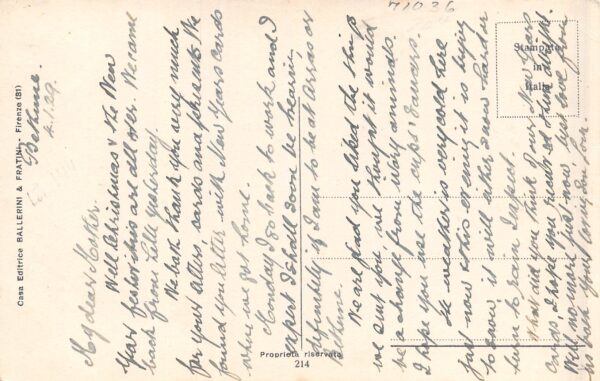 71036
Stampato
in
Italia
Casa Editrice BALLERINI & FRATINI - Firenze (81)
Proprietà riservata
214
Bethune.
4.1.29.
My dear Mother.
Well Christmas & the New
Year festivities are all over. We came
back from Lille yesterday.
We both thank you very much
for your letter, cards and presents. We
found your letter with New Years cards
when we got home.
Monday I go back to work and I
expect I shall soon be hearing
definitely if I am to be at Arras or
Bethune.
We are glad you liked the things
we sent you, we thought it would
be a change from
I hope you use the cups & saucers.
The weather is very cold here
just now & this evening it is trying
to snow, it will either snow harder
turn to rain I expect.
What did you think of our New Years
cards, I hope you received them alright.
Well no more just now, best love from
us both Your loving son